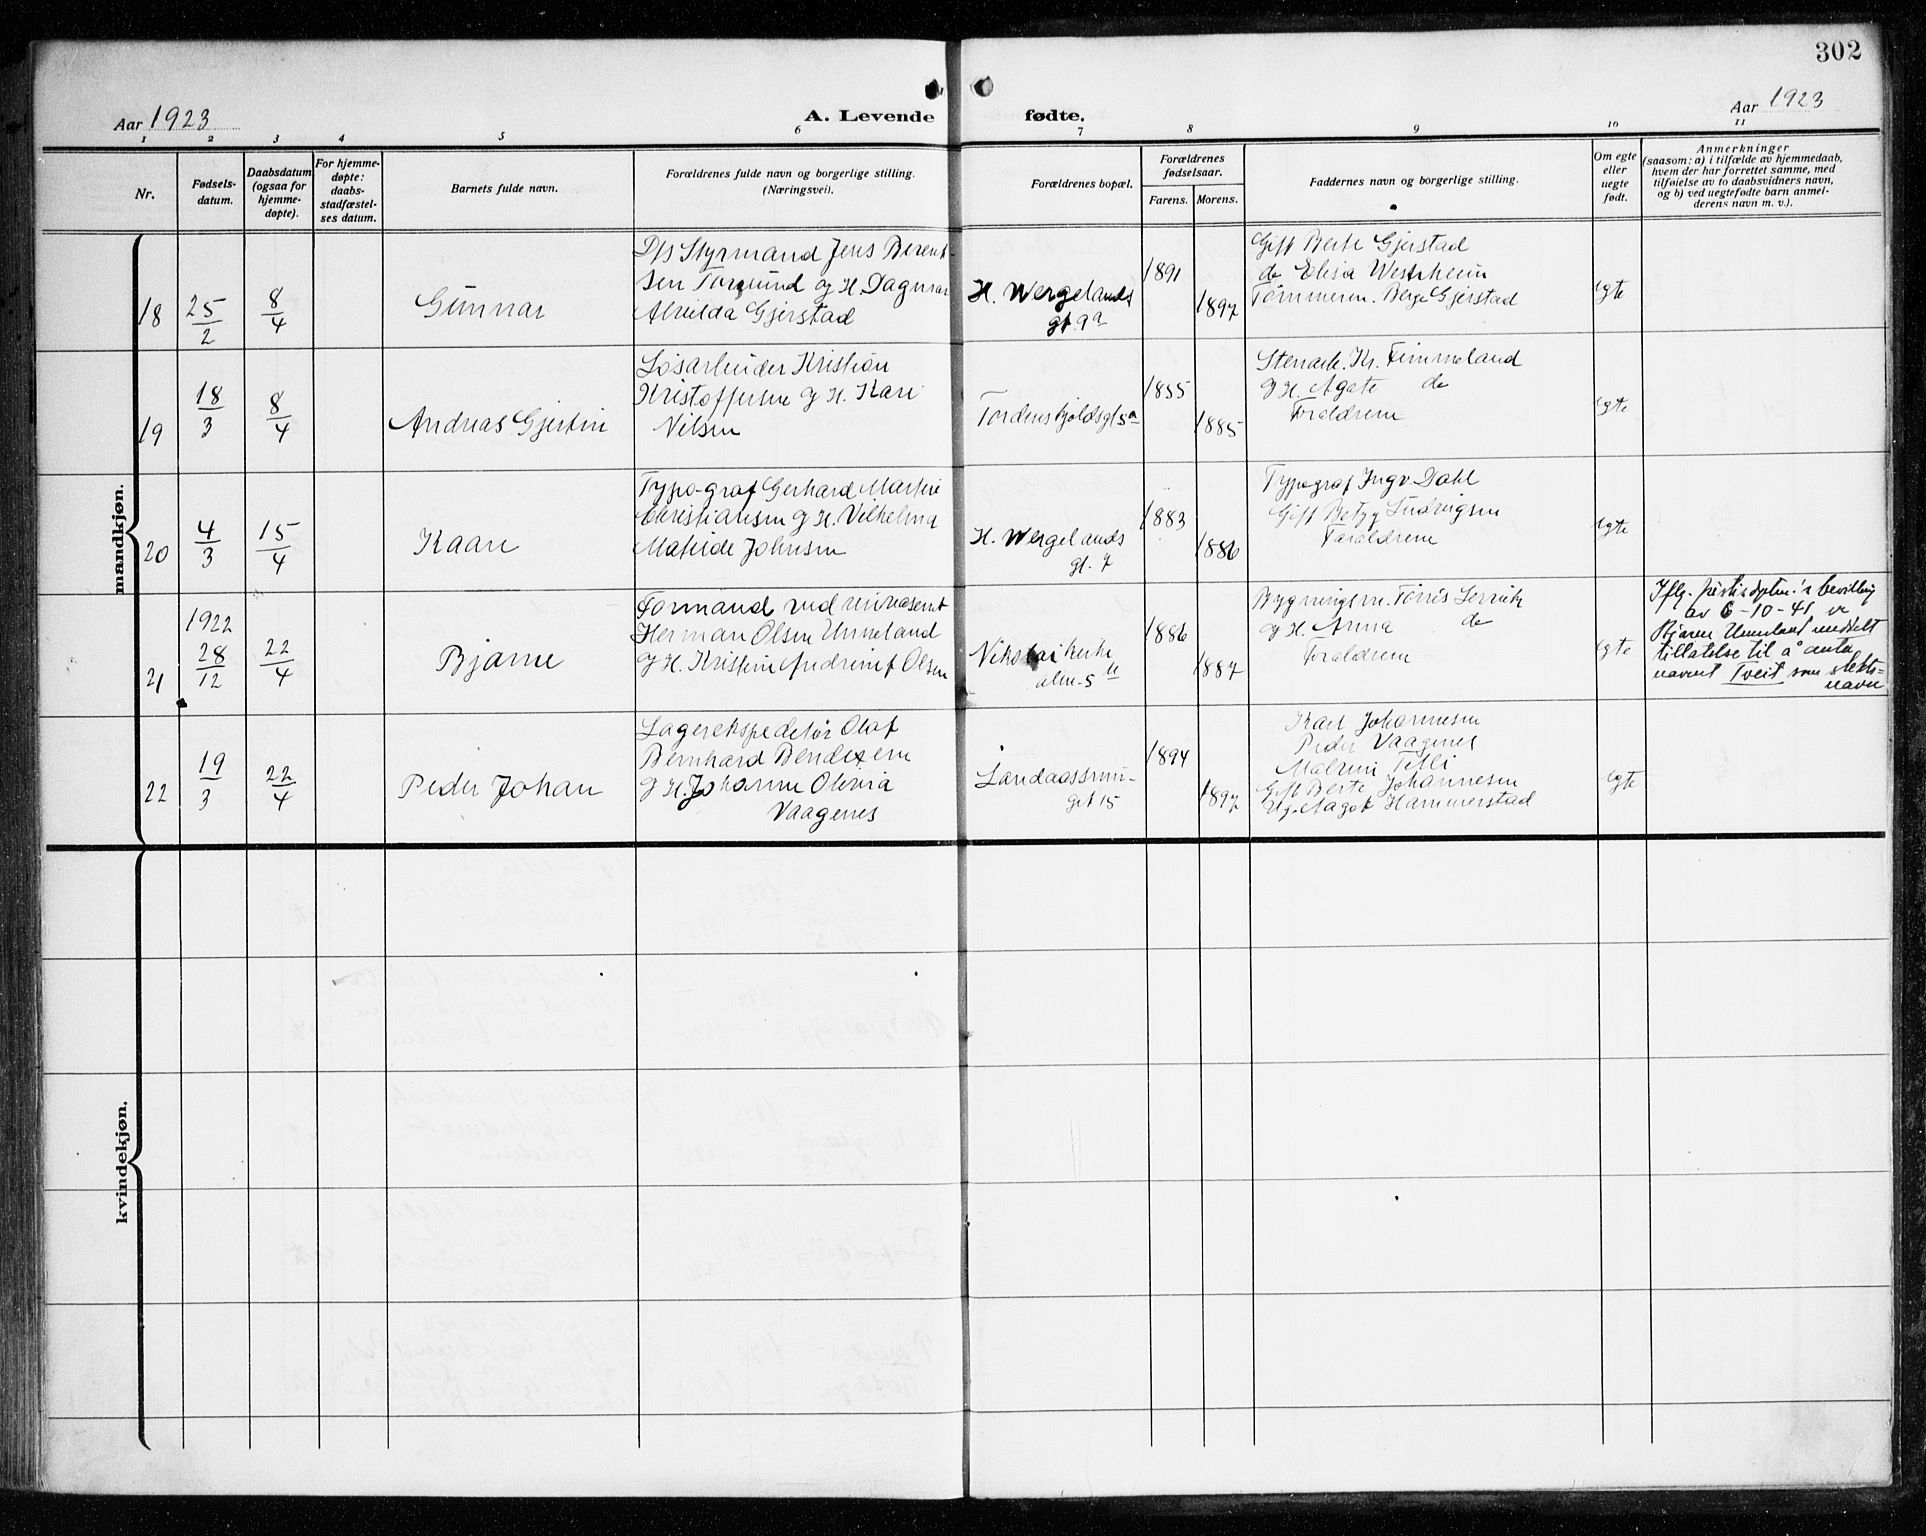 302
Aar 1923
A. Levende fødte.
Aar 1923
1 2 3 4 5 6 7 8 9 10 11
Nr.
Fødsels-
datum.
Daabsdatum
(ogsaa for
hjemme-
døpte).
For hjemme-
døpte:
daabs-
stadfæstel-
ses datum.
Barnets fulde navn.
Forældrenes fulde navn og borgerlige stilling.
(Næringsvei).
Forældrenes bopæl.
Forældrenes
fødselsaar.
Farens. Morens.
Faddernes navn og borgerlige stilling.
Om egte
eller
uegte
født.
Anmerkninger
(saasom: a) i tilfælde av hjemmedaab,
hvem der har forrettet samme, med
tilføielse av to daabsvidners navn,
og b) ved uegtefødte barn anmel-
derens navn m. v.).
mandkjøn.
18
25/2
8/4
Gunnar
D/s Styrmand Jens Berent-
sen Torsund og H. Dagmar
Alvilda Gjerstad
H. Wergelands
gt. 9a
1891
1897
Gift Berte Gjerstad
do Elisa Westrheim
Tømmerm. Berge Gjerstad
egte
19
18/3
8/4
Andreas Gjertin
Løsarbeider Kristian
Kristoffersen og H. Kari
Nilsen
Tordenskjoldsgt 5a
1885
1885
Stenarb. Kr. Fimmeland
og H. Agate do
Foraldrene
egte
20
4/3
15/4
Kaare
Typograf Gerhard Martin
Christiansen og H. Vilhelma
Matilde Johnsen
H. Wergelands
gt. 7
1883
1886
Typograf Ingv. Dahl
Gift Betzy Ludvigsen
Foraldrene
egte
21
1922
28/12
22/4
Bjarne
Formand ved renvæsenet
Herman Olsen Unneland
og H. Kristine Andrine f. Olsen
Nikolaikirke
alm. 5
1886
1887
Bygningsm.
og H. Anna do
Foraldrene
egte
Iflg. justisdptm.'s bevilling
av 6-10-41 er
Bjarne Unneland meddelt
tillatelse til å anta
navnet Tveit som slekts-
navn
22
19/3
22/4
Peder Johan
Lagerekspeditør Olaf
Bernhard Bendixen
og H. Johanne Olivia
Vaagenes
Landaassvin-
gt 15
1894
1897
Karl Johannesen
Peder Vaagenes
Malvin Tetli
Gift Berte Johannesen
Ug. Aagot Hammerstad
egte
kvindekjøn.